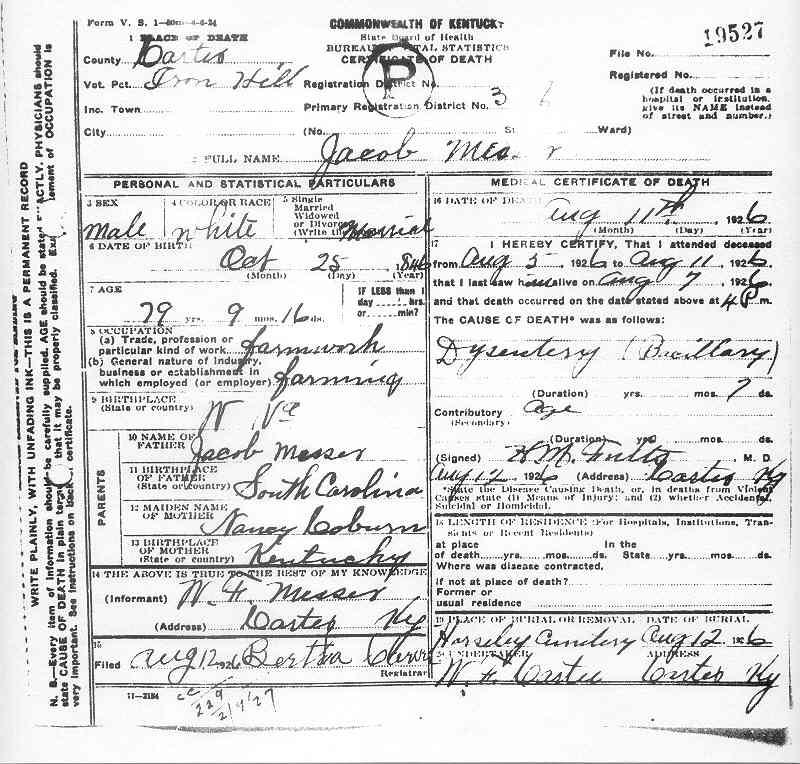 Form V. S. 1—50m—4-6-24
COMMONWEALTH OF KENTUCKY
State Board of Health
BUREAU OF VITAL STATISTICS
CERTIFICATE OF DEATH
File No. 19527
Registered No.
(If death occurred in a hospital or institution, give its NAME instead of street and number.)
1 PLACE OF DEATH
County Carter
Vot. Pct. Iron Hill Registration District No.
Inc. Town Primary Registration District No. 3 6
City (No. St. Ward)
P
2 FULL NAME Jacob Messer
PERSONAL AND STATISTICAL PARTICULARS
3 SEX Male
4 COLOR OR RACE White
5 Single Married Widowed or Divorced (Write the word) Married
6 DATE OF BIRTH Oct 25 1846
(Month) (Day) (Year)
7 AGE 79 yrs. 9 mos. 16 ds.
IF LESS than 1 day hrs. or min?
8 OCCUPATION
(a) Trade, profession or particular kind of work farmwork
(b) General nature of industry, business or establishment in which employed (or employer) farming
9 BIRTHPLACE (State or country) W Va
PARENTS
10 NAME OF FATHER Jacob Messer
11 BIRTHPLACE OF FATHER (State or country) South Carolina
12 MAIDEN NAME OF MOTHER Nancy Coburn
13 BIRTHPLACE OF MOTHER (State or country) Kentucky
14 THE ABOVE IS TRUE TO THE BEST OF MY KNOWLEDGE
(Informant) W. F. Messer
(Address) Carter Ky
15
Filed Aug 12 1926 Bertha
Registrar
11—2184
2/9/27
MEDICAL CERTIFICATE OF DEATH
16 DATE OF DEATH Aug 11th 1926
(Month) (Day) (Year)
17 I HEREBY CERTIFY, That I attended deceased
from Aug 5 1926 to Aug 11 1926
that I last saw him alive on Aug 7 1926
and that death occurred on the date stated above at 4 P m.
The CAUSE OF DEATH* was as follows:
Dysentery (Bacillary)
(Duration) yrs. mos. 7 ds.
Contributory Age
(Secondary)
(Duration) yrs. mos. ds.
(Signed) H. M. Fults M. D.
Aug 12 1926 (Address) Carter Ky
*State the Disease Causing Death, or, in deaths from Violent
Causes state (1) Means of Injury; and (2) whether Accidental,
Suicidal or Homicidal.
18 LENGTH OF RESIDENCE (For Hospitals, Institutions, Transients or Recent Residents)
at place of death yrs. mos. ds. In the State yrs. mos. ds.
Where was disease contracted,
If not at place of death?
Former or usual residence
19 PLACE OF BURIAL OR REMOVAL DATE OF BURIAL
Horseley Cemetery Aug 12 1926
20 UNDERTAKER ADDRESS
W. F. Carter Carter Ky
WRITE PLAINLY, WITH UNFADING INK—THIS IS A PERMANENT RECORD
N. B.—Every item of information should be carefully supplied. AGE should be stated EXACTLY. PHYSICIANS should
state CAUSE OF DEATH in plain terms so that it may be properly classified. Exact statement of OCCUPATION is
very important. See instructions on back of certificate.